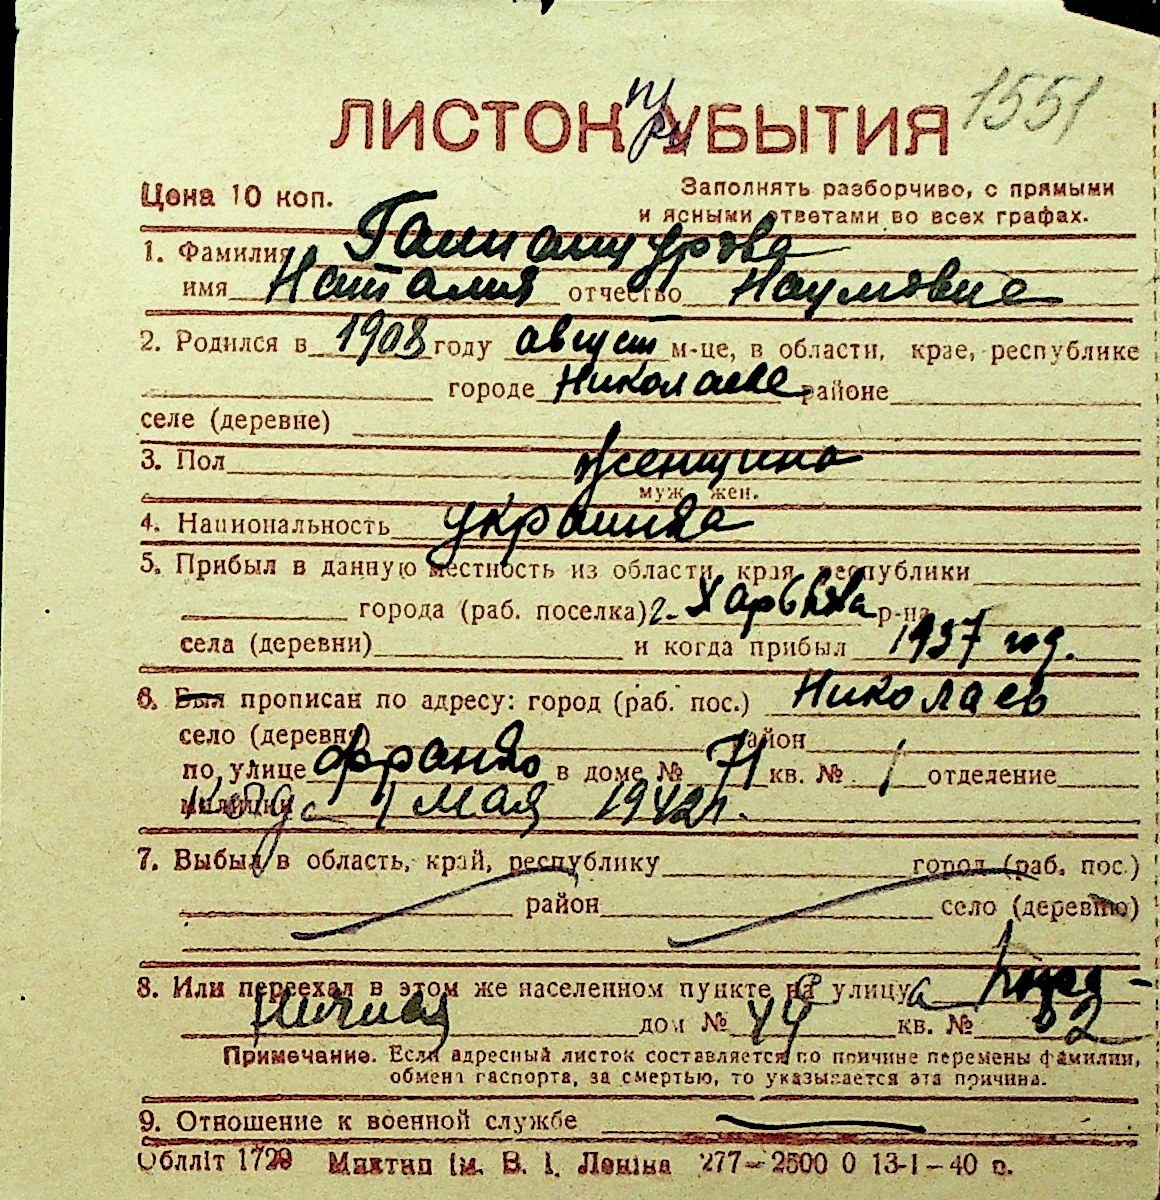 1551
ЛИСТОК при УБЫТИЯ
Цена 10 коп. Заполнять разборчиво, с прямыми
и ясными ответами во всех графах.
1. Фамилия
имя Наталия отчество Наумовне
2. Родился в 1908 году август м-це, в области, крае, республике
городе Николаеве районе
селе (деревне)
3. Пол женщина
муж. жен.
4. Национальность украинка
5. Прибыл в данную местность из области, края, республики
города (раб. поселка) г. Харькова р-на
села (деревни) и когда прибыл 1937 год.
6. Был прописан по адресу: город (раб. пос.) Николаев
село (деревня) район
по улице Франко в доме № 71 кв. № 1 отделение
милиции с 1 мая 1942 г.
7. Выбыл в область, край, республику город (раб. пос.)
район село (деревню)
8. Или переехал в этом же населенном пункте на улицу
дом № 44 кв. № 2
Примечание. Если адресный листок составляется по причине перемены фамилии,
обмена паспорта, за смертью, то указывается эта причина.
9. Отношение к военной службе
Обллiт 1729 Миктип iм. В. I. Ленiна 277—2500 0 13-1-40 р.